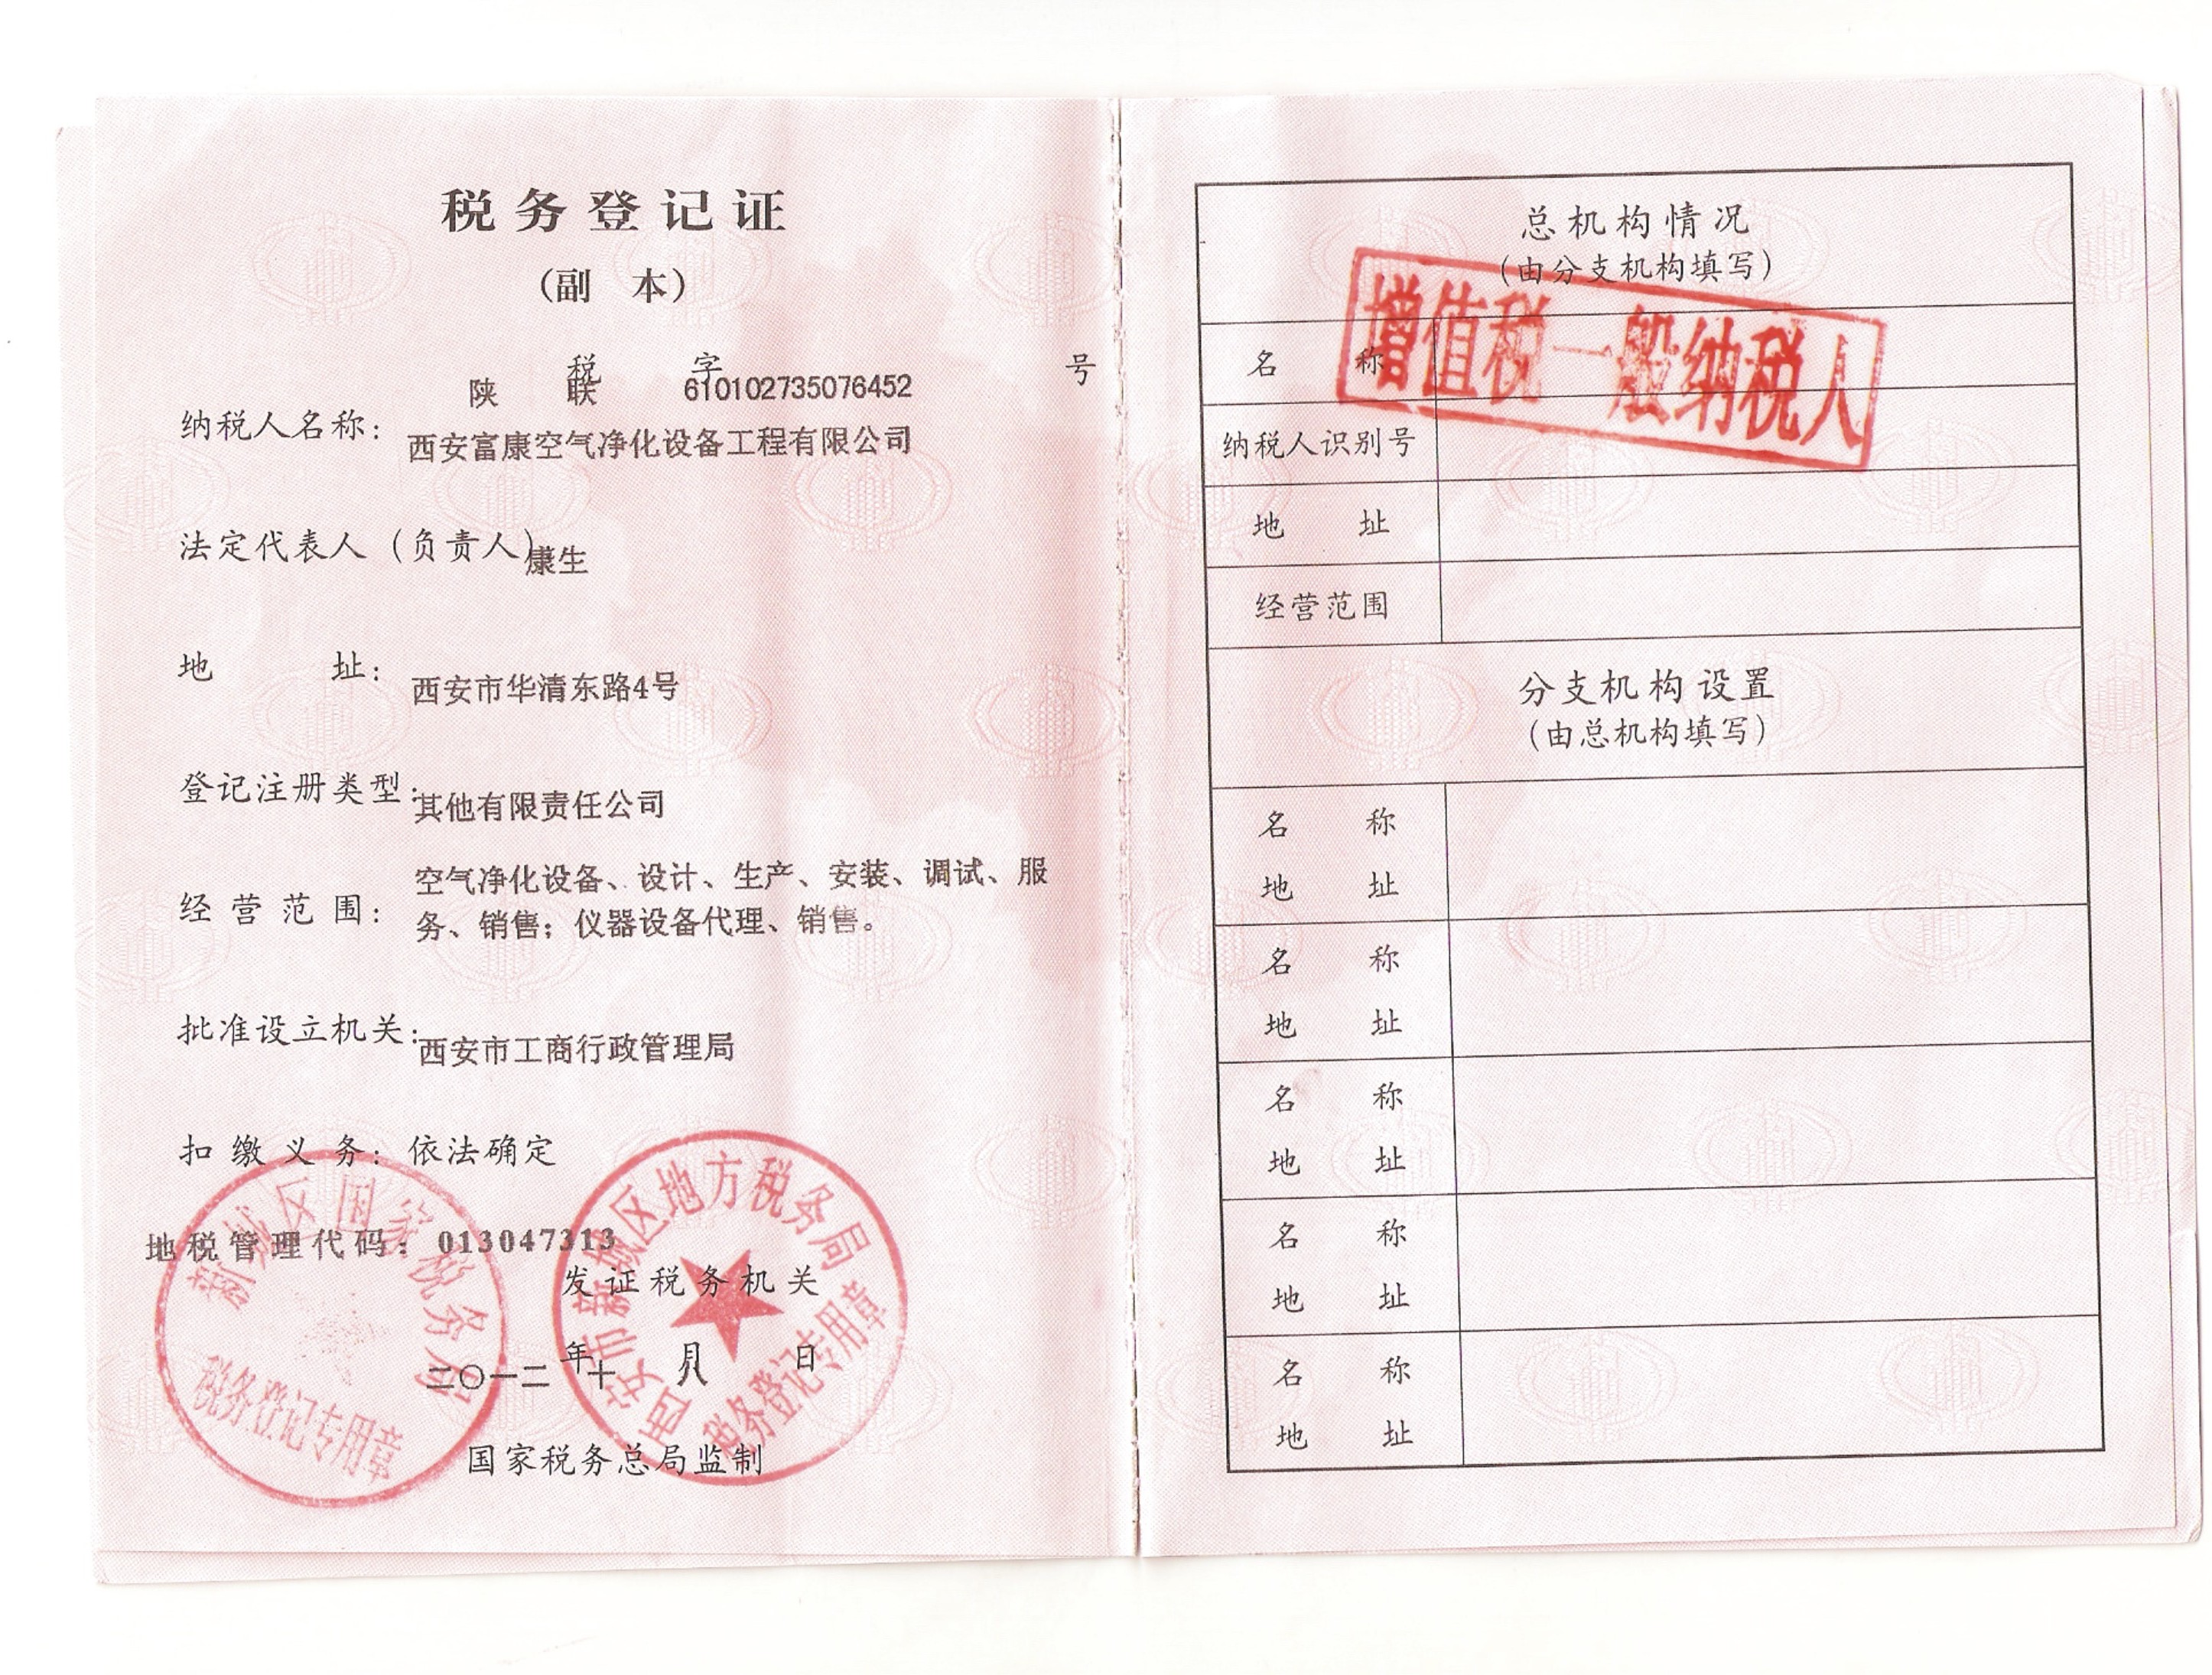 税务登记证
(副 本)
税 字 号
陕 联 610102735076452
纳税人名称：西安富康空气净化设备工程有限公司
法定代表人（负责人）康生
地 址：西安市华清东路4号
登记注册类型：其他有限责任公司
经营范围：空气净化设备、设计、生产、安装、调试、服
务、销售；仪器设备代理、销售。
批准设立机关：西安市工商行政管理局
扣缴义务：依法确定
地税管理代码：013047313
发证税务机关
二〇一二年十月八日
国家税务总局监制
新城区国家税务局
税务登记专用章
西安市新城区地方税务局
税务登记专用章
总机构情况
(由分支机构填写)
增值税一般纳税人
名 称
纳税人识别号
地 址
经营范围
分支机构设置
(由总机构填写)
名 称
地 址
名 称
地 址
名 称
地 址
名 称
地 址
名 称
地 址